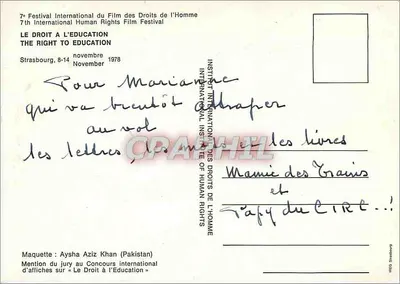 7e Festival International du Film des Droits de l'Homme
7th International Human Rights Film Festival
LE DROIT A L'EDUCATION
THE RIGHT TO EDUCATION
Strasbourg, 8-14 novembre 1978
November
Pour Marianne
qui va bientôt attraper
au vol
les lettres, les mots et les livres
Mamie des Trains
et
Papy du CIRC..!
INSTITUT INTERNATIONAL DES DROITS DE L'HOMME
INTERNATIONAL INSTITUTE OF HUMAN RIGHTS
CPARAMA
Maquette : Aysha Aziz Khan (Pakistan)
Mention du jury au Concours international
d'affiches sur « Le Droit à l'Education »